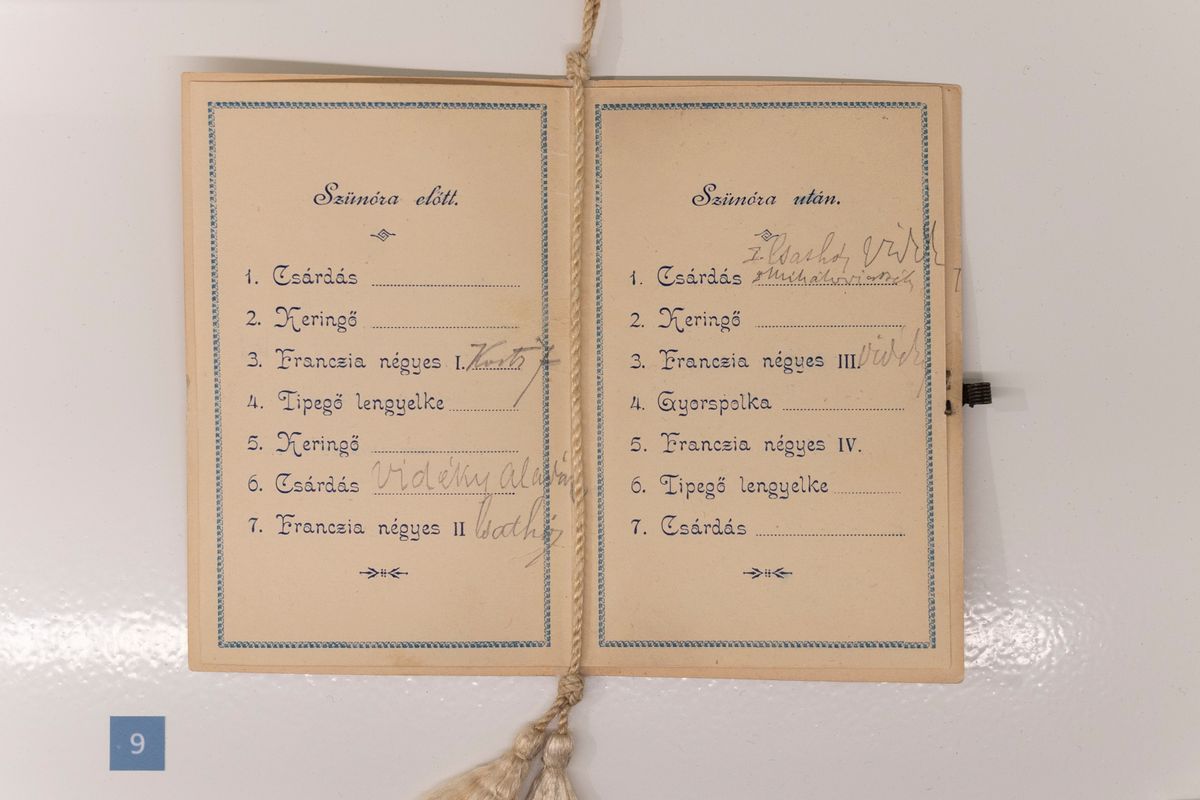 Szünóra előtt.
1. Csárdás
2. Keringő
3. Franczia négyes I.
4. Tipegő lengyelke
5. Keringő
6. Csárdás Vidéky Aladár
7. Franczia négyes II Csathó
Szünóra után.
1. Csathó, Vidéky
1. Csárdás
2. Keringő
3. Franczia négyes III. Vidéky
4. Gyorspolka
5. Franczia négyes IV.
6. Tipegő lengyelke
7. Csárdás
9